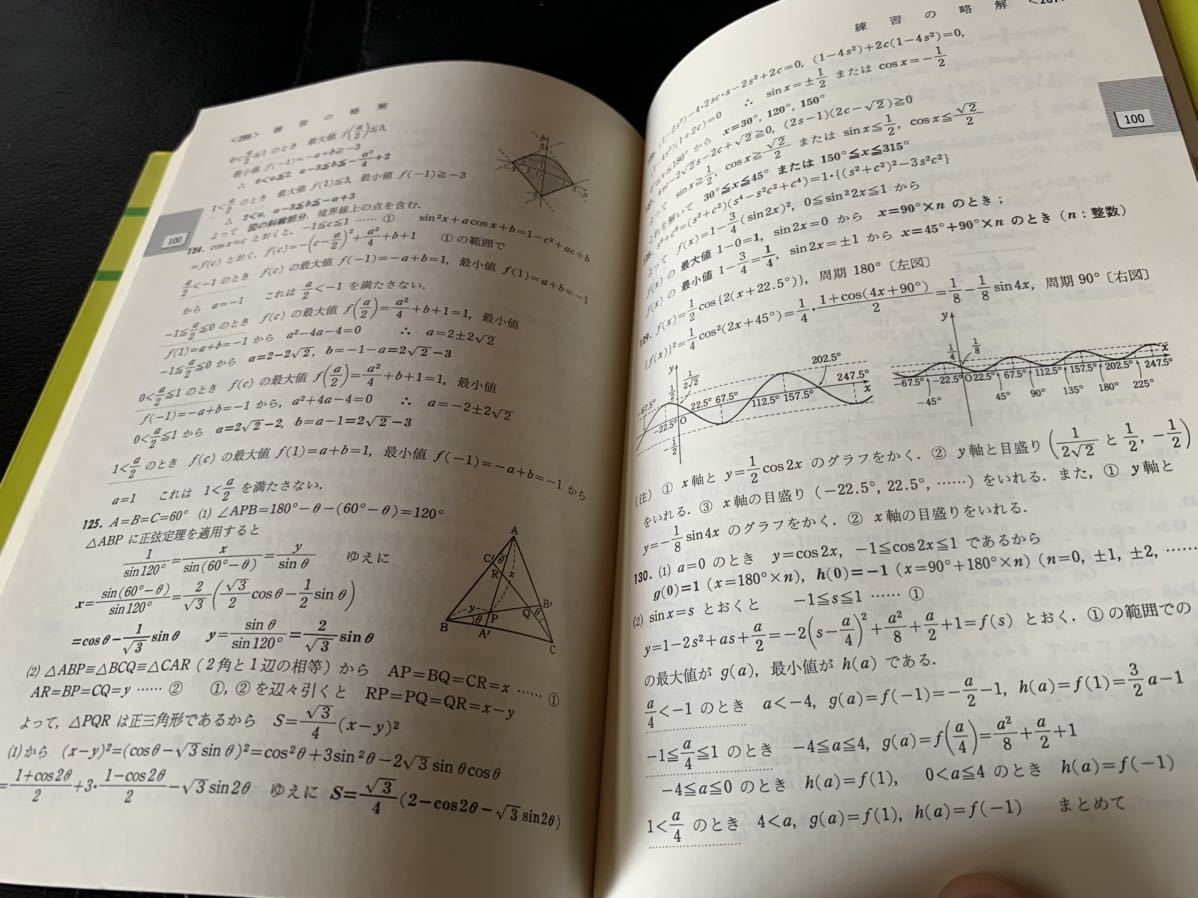 <266> 練習の略解
100
0<a/2≦1 のとき 最大値 f(a/2)≦3,
最小値 f(−1)=−a+b≧−3
∴ 0<a≦2, a−3≦b≦−a²/4+2
1<a/2 のとき 最大値 f(1)≦3, 最小値 f(−1)≧−3
∴ 2<a, a−3≦b≦−a+3
よって 図の斜線部分, 境界線上の点を含む.
124. cosx=c とおくと, −1≦c≦1 …… ① sin²x+acosx+b=1−c²+ac+b
=f(c) とおく, f(c)=−(c−a/2)²+a²/4+b+1 ①の範囲で
a/2<−1 のとき f(c) の最大値 f(−1)=−a+b=1, 最小値 f(1)=a+b=−1
から a=−1 これは a/2<−1 を満たさない.
−1≦a/2≦0 のとき f(c) の最大値 f(a/2)=a²/4+b+1=1, 最小値
f(1)=a+b=−1 から a²−4a−4=0 ∴ a=2±2√2
−1≦a/2≦0 から a=2−2√2, b=−1−a=2√2−3
0<a/2≦1 のとき f(c) の最大値 f(a/2)=a²/4+b+1=1, 最小値
f(−1)=−a+b=−1 から, a²+4a−4=0 ∴ a=−2±2√2
0<a/2≦1 から a=2√2−2, b=a−1=2√2−3
1<a/2 のとき f(c) の最大値 f(1)=a+b=1, 最小値 f(−1)=−a+b=−1 から
a=1 これは 1<a/2 を満たさない.
125. A=B=C=60° (1) ∠APB=180°−θ−(60°−θ)=120°
△ABP に正弦定理を適用すると
1/sin120°=x/sin(60°−θ)=y/sinθ ゆえに
x=sin(60°−θ)/sin120°=2/√3(√3/2 cosθ−1/2 sinθ)
=cosθ−1/√3 sinθ y=sinθ/sin120°=2/√3 sinθ
A
C′ θ
R
x
y
P
B′
Q θ
B θ
A′
C
(2) △ABP≡△BCQ≡△CAR (2角と1辺の相等) から AP=BQ=CR=x …… ①
AR=BP=CQ=y …… ② ①, ② を辺々引くと RP=PQ=QR=x−y
よって, △PQR は正三角形であるから S=√3/4(x−y)²
(1)から (x−y)²=(cosθ−√3 sinθ)²=cos²θ+3sin²θ−2√3 sinθcosθ
=1+cos2θ/2+3·1−cos2θ/2−√3 sin2θ ゆえに S=√3/4(2−cos2θ−√3 sin2θ)
練習の略解
100
−4·2sc·s−2s²+2c=0, (1−4s²)+2c(1−4s²)=0,
(1+2c)=0 ∴ sinx=±1/2 または cosx=−1/2
から x=30°, 120°, 150°
−2√2s−2c+√2≧0, (2s−1)(2c−√2)≧0
よって sinx≧1/2, cosx≧√2/2 または sinx≦1/2, cosx≦√2/2
これを解いて 30°≦x≦45° または 150°≦x≦315°
=(s²+c²)(s⁴−s²c²+c⁴)=1·{(s²+c²)²−3s²c²}
よって f(x)=1−3/4(sin2x)², 0≦sin²2x≦1 から
f(x) の 最大値 1−0=1, sin2x=0 から x=90°×n のとき;
f(x) の 最小値 1−3/4=1/4, sin2x=±1 から x=45°+90°×n のとき (n:整数)
129. f(x)=1/2cos{2(x+22.5°)}, 周期 180° [左図]
{f(x)}²=1/4cos²(2x+45°)=1/4·1+cos(4x+90°)/2=1/8−1/8 sin4x, 周期 90° [右図]
y
1/2
1/2√2
−67.5° −22.5° O 22.5° 67.5° 112.5° 157.5° 202.5° 247.5° x
−1/2
y
1/4
1/8
−67.5° −22.5° O 22.5° 67.5° 112.5° 157.5° 202.5° 247.5° x
−45° 45° 90° 135° 180° 225°
(注) ① x軸と y=1/2cos2x のグラフをかく. ② y軸と目盛り (1/2√2 と 1/2, −1/2)
をいれる. ③ x軸の目盛り (−22.5°, 22.5°, ……) をいれる. また, ① y軸と
y=−1/8 sin4x のグラフをかく. ② x軸の目盛りをいれる.
130. (1) a=0 のとき y=cos2x, −1≦cos2x≦1 であるから
g(0)=1 (x=180°×n), h(0)=−1 (x=90°+180°×n) (n=0, ±1, ±2, ……
(2) sinx=s とおくと −1≦s≦1 …… ①
y=1−2s²+as+a/2=−2(s−a/4)²+a²/8+a/2+1=f(s) とおく. ①の範囲での
の最大値が g(a), 最小値が h(a) である.
a/4<−1 のとき a<−4, g(a)=f(−1)=−a/2−1, h(a)=f(1)=3/2 a−1
−1≦a/4≦1 のとき −4≦a≦4, g(a)=f(a/4)=a²/8+a/2+1
−4≦a≦0 のとき h(a)=f(1), 0<a≦4 のとき h(a)=f(−1)
1<a/4 のとき 4<a, g(a)=f(1), h(a)=f(−1) まとめて